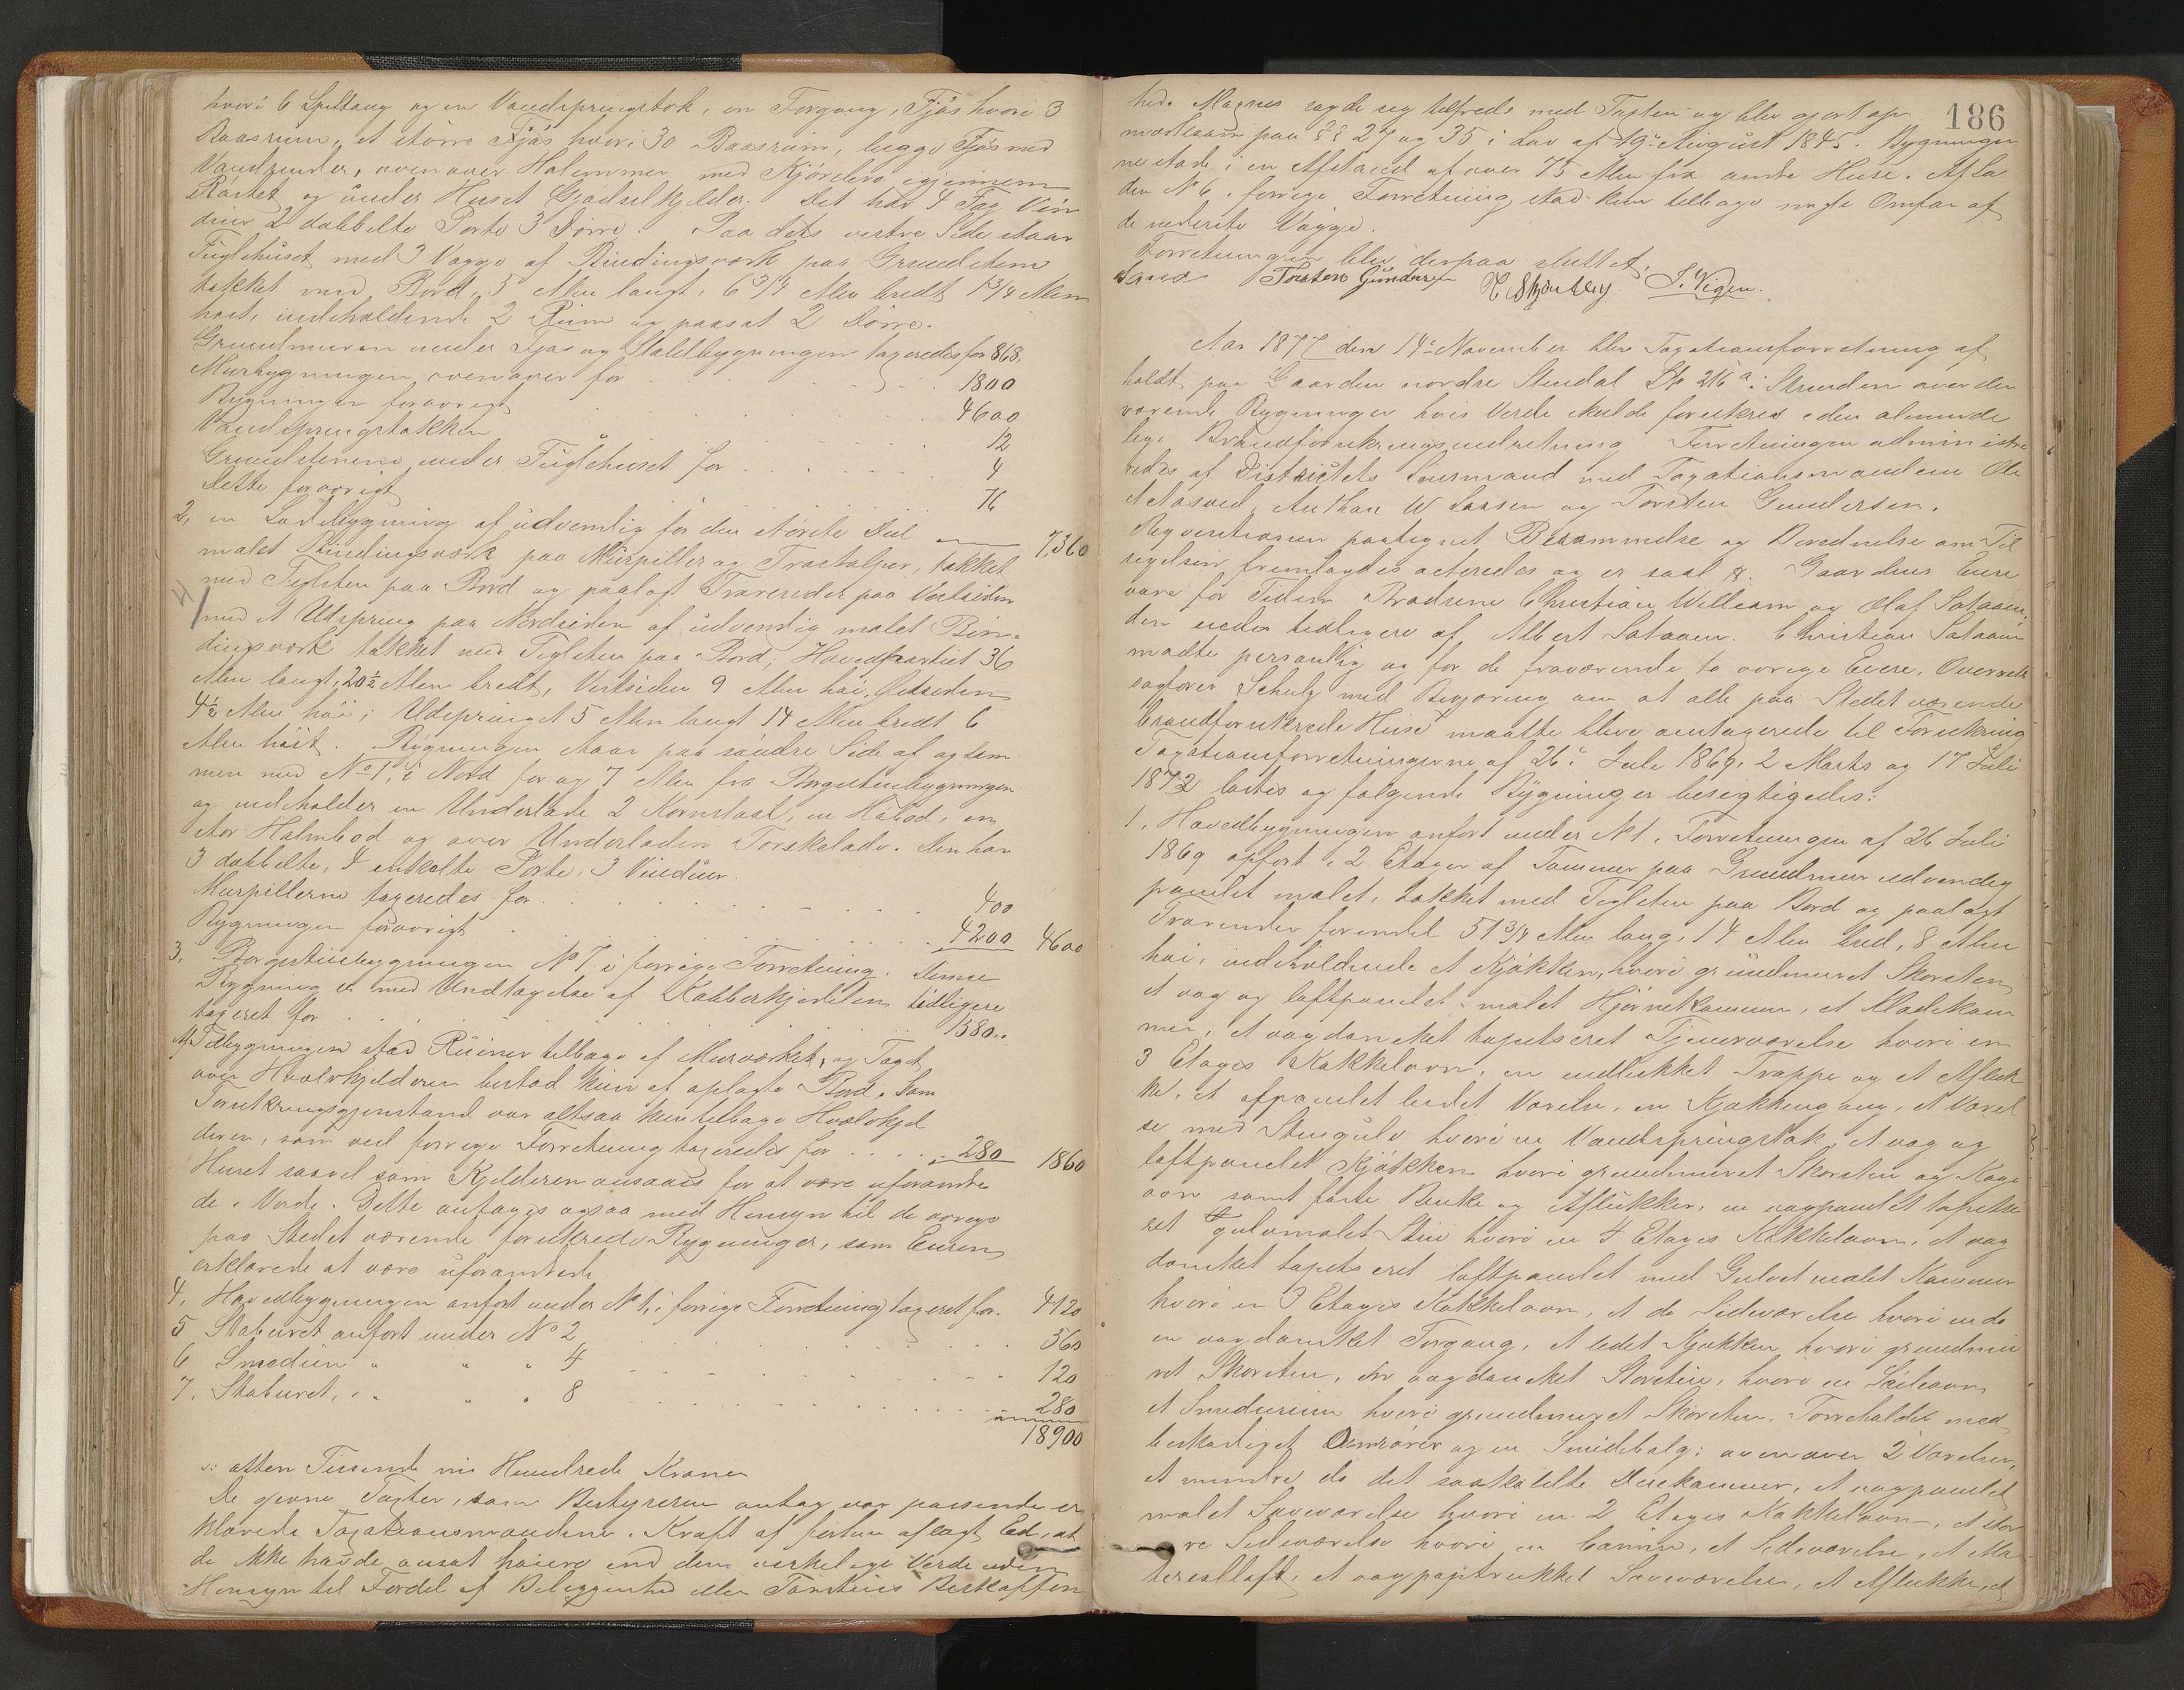 hvori 6 Spiltaug og en Vandspringstok, en Forgang, Fjøs hvori 3
Baasrum, et større Fjøs hvori 30 Baasrum, begge Fjøs med
Vandrender, ovenover Halmrum med Kjørebro igjennem
og under Huset Gjødselkjelder. Det har 4 Fag Vin
duer 2 dobbelte Porte 3 Dørre. Paa dets vestre Side staar
Fuglehuset med 3 Vægge af Bindingsværk paa Grundstene
tækket med Bord, 5 Alen langt, 6 3/4 Alen bredt 1 3/4 Alen
høit, indeholdende 2 Rum og paasat 2 Dørre.
Grundmuren under Fjøs og Staldbygningen taxeredes for 868.
Murbygningen ovenover for 1800
Bygningen forøvrigt 4600
Vandspringstokken 12
Grundstenene under Fuglehuset for 4
dette forøvrigt 76
7,360
2, en Ladebygning af udvendig for den største Del
malet Bindingsværk paa Murpiller og Træstolper, tækket
med Teglsten paa Bord og paalagt Tværrender paa Vestsiden
med et Udspring paa Nordsiden af udvendig malet Bin-
dingsværk tækket med Teglsten paa Bord; Hovedpartiet 36
Alen langt, 20 1/2 Alen bredt, Vestsiden 9 Alen høi, Østsiden
4 1/2 Alen høi; Udspringet 5 Alen langt 14 Alen bredt 6
Alen høit. Bygningen staar paa søndre Side af og sam
men med No 1, i Nord for og 7 Alen fra Borgestuebygningen
og indeholder en Underlade 2 Kornstaal, en Høbod, en
stor Halmbod og over Underladen Torskelade. Den har
3 dobbelte, 4 enkelte Porte, 3 Vinduer.
Murpillerne taxeredes for 400
Bygningen forøvrigt 4200 4600
3, Borgestuebygningen No 7 i forrige Forretning. Denne
Bygning er med Undtagelse af Kobberkjedelen tidligere
taxeret for 1580..
4, bygningen stod Ruiner tilbage af Murværket, og Taget
over Hvælvkjelderen bestod kun af oplagte Bord. Som
Forsikringsgjenstand var altsaa kun tilbage Hvælvkjel
deren, som ved forrige Forretning taxeredes for 280 1860
Huset saavel som Kjelderen ansaaes for at være uforandre
de i Værdi. Dette antages ogsaa med Hensyn til de øvrige
paa Stedet værende forsikrede Bygninger, som Eieren
erklærede at være uforandrede
4, Hovedbygningen anført under No 1, i forrige Forretning taxeret for. 4120
5 Staburet anført under No 2 560
6 Smedien " " " 4 120
7, Staburet, " " " 8 280
18900
atten Tusinde ni Hundrede Kroner
De givne Taxter, som Bestyreren antog var passende er
klærede Taxationsmændene i Kraft af fortun aflagt Ed, at
de ikke havde ansat høiere end den virkelige Værdi uden
Hensyn til Fordel af Beliggenhed eller Tomtens Beskaffen
186
hed. Magnus sagde sig tilfreds med Taxten og blev gjort op
mærksom paa §§ 27 og 35 i Lov af 19de August 1845. Bygninger
ne stode i en Afstand af over 75 Alen fra andre Huse. Af La
den No 6. forrige Forretning stod kun tilbage nogle Omfar af
de nederste Vægge.
Forretningen blev derpaa sluttet.
Torsten Gundersen J. Vigen.
Aar 1877 den 14de November blev Taxationsforretning af
holdt paa Gaarden nordre Stendal No 216 a. i Skien over der
værende Bygninger hvis Værdi skulde forsikres i den alminde
lige Brandforsikringsindretning Forretningen administre
redes af Distriktets Lensmand med Taxationsmændene Ole
Aasved, Anthon W Larsen og Torsten Gundersen.
Reqvisitionen paategnet Berammelse og Beviidnelse om Til
sigelsen fremlagdes acteredes og er saal . Gaardens Eiere
vare for Tiden Brødrene Christian William og Olaf Sataaen,
den eiedes tidligere af Albert Sataaen. Christian Sataaen
mødte personlig og for de fraværende to øvrige Eiere, Overrets
sagfører Schulz med Begjæring om at alle paa Stedet værende
brandforsikrede Huse maatte blive omtaxerede til Forsikring
Taxationsforretningerne af 26de Juli 1869, 2 Marts og 17 Juli
1872 læstes og følgende Bygninger besigtigedes:
1, Hovedbygningen anført under No 1, Forretningen af 26 Juli
1869 opført i 2 Etager af Tømmer paa Grundmur udvendig
panelet malet, tækket med Teglsten paa Bord og paalagt
Tværrender forendel 51 3/4 Alen lang, 14 Alen bred, 8 Alen
høi, indeholdende et Kjøkken, hvori grundmuret Skorsten,
et væg og loftpanelet malet Hjørnekammer, et Madkam
mer, et vægdansket tapetseret Tjenerværelse hvori en
3 Etages Kakkelovn, en indlukket Trappe og et Afluk
ke, et afpanelet lidet Værelse, en Kjøkkengang, et Værel
se med Stengulv hvori en Vandspringstok, et væg og
loftpanelet Kjøkken hvori grundmuret Skorsten og Bage
ovn samt faste Bænke og Aflukker, en vægpanelet tapetse
ret gulvmalet Stue hvori en 4 Etages Kakkelovn, et væg
dansket tapetseret loftpanelet med Gulvet malet Kammer
hvori en 3 Etages Kakkelovn, et do Sideværelse hvori en do
en vægdansket Forgang, et lidet Kjøkken hvori grundmu
ret Skorsten, en vægdansket Storstue, hvori en Søileovn,
et Smederum hvori grundmuret Skorsten, Torreholdet med
beskadiget og en Smidebælg; ovenover 2 Værelser,
et mindre do det saakaldte Duekammer, et vægpanelet
malet Soveværelse hvori en 2 Etages Kakkelovn, et stør
re Sideværelse hvori en Camin, et Sideværelse, et Ma
terialloft, et vægpaptrukket Soveværelse, et Aflukke, et